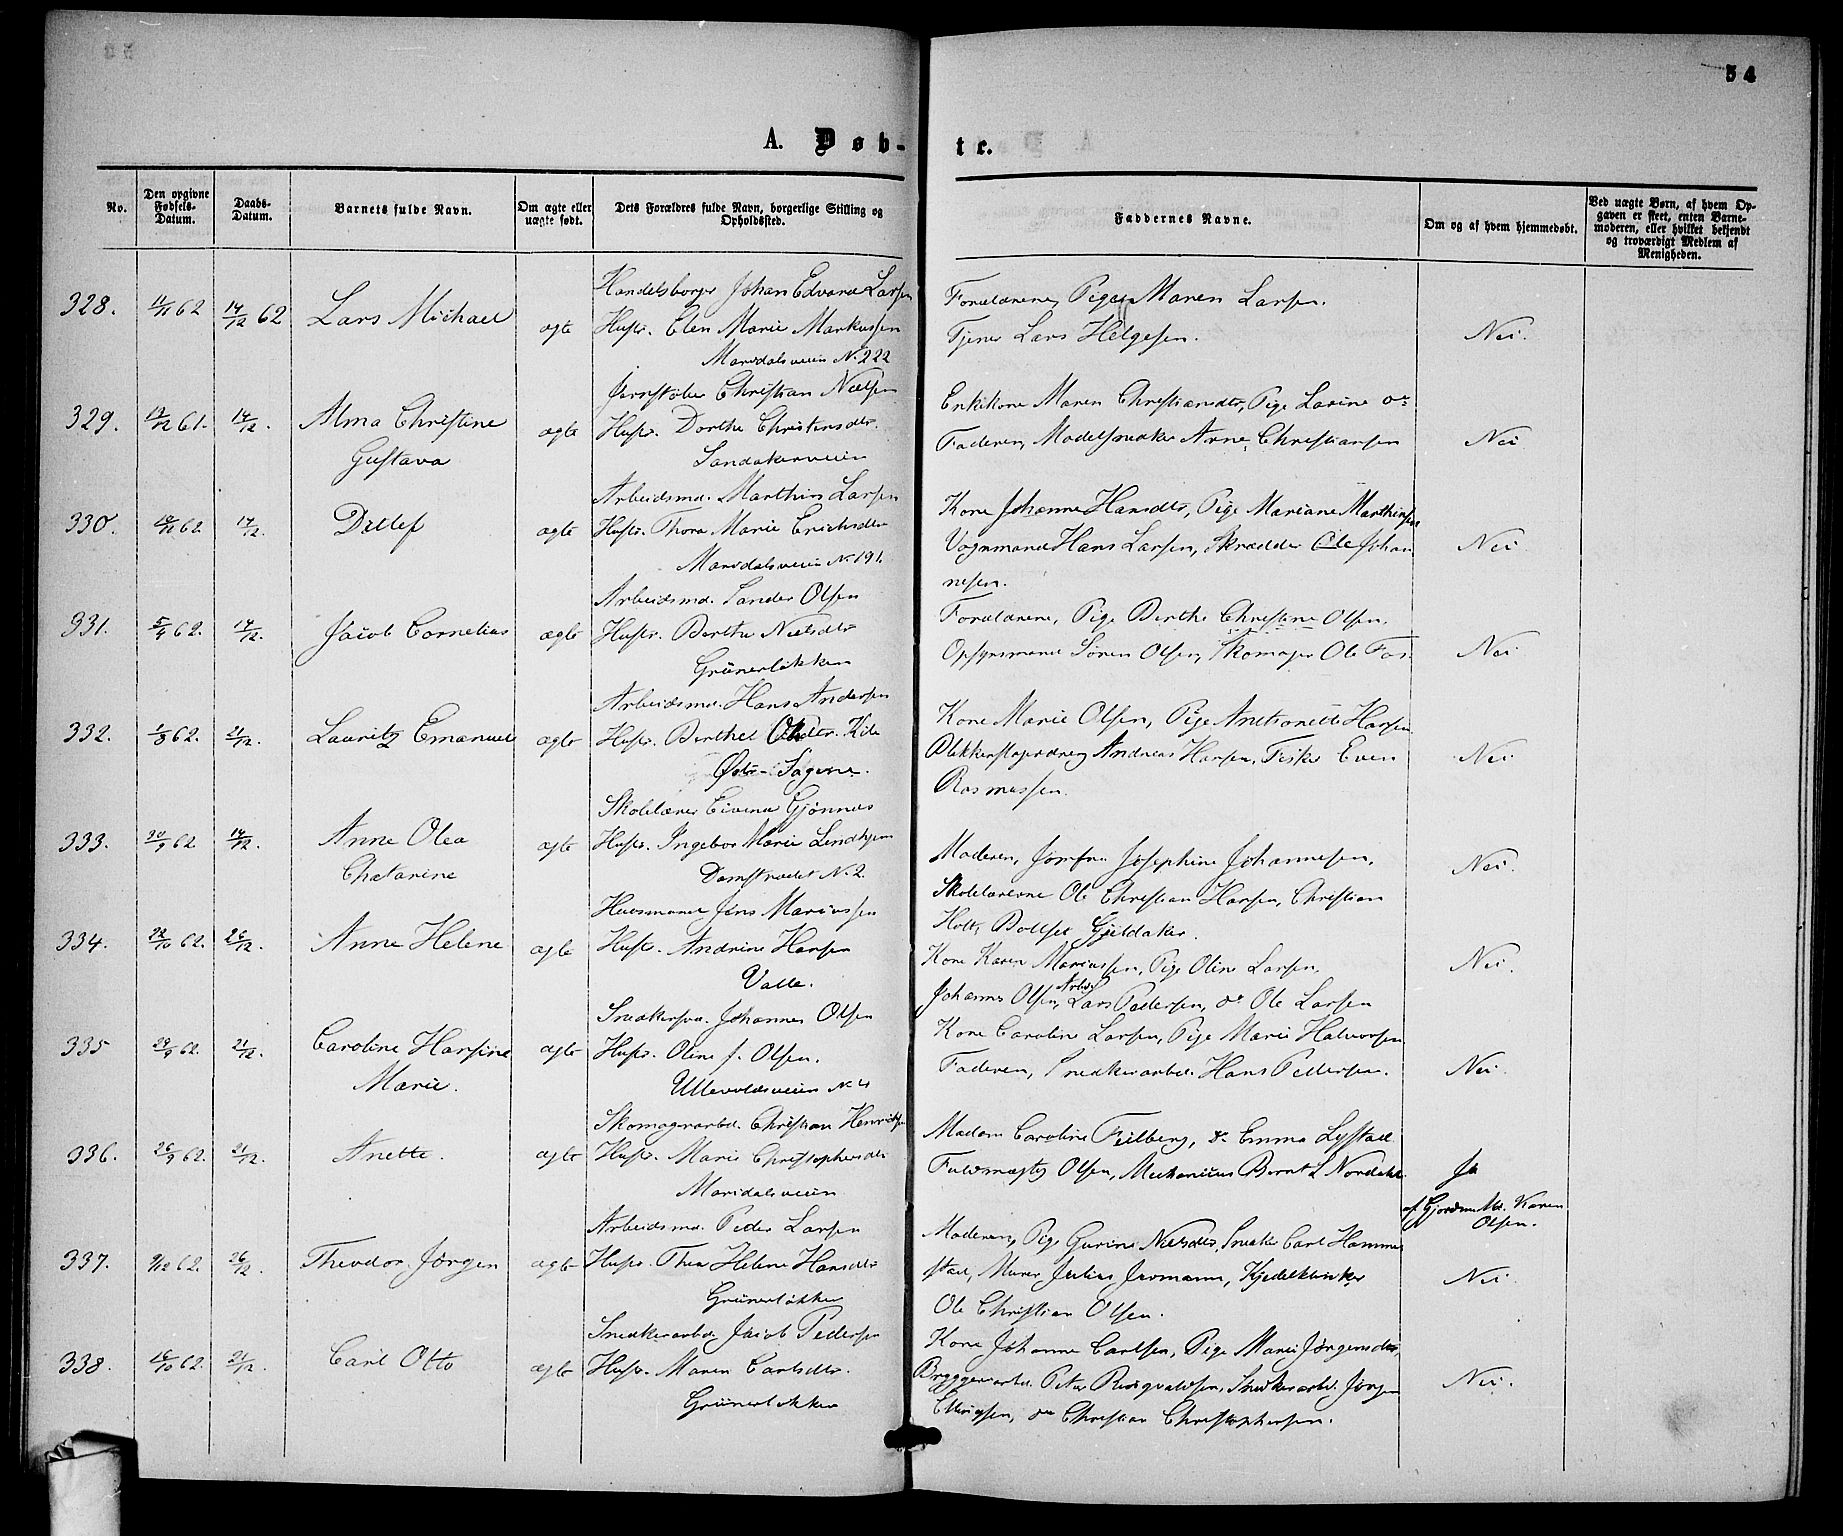 54
A. Døb-
te.
No.
Den opgivne Fødsels-Datum.
Daabs-Datum.
Barnets fulde Navn.
Om ægte eller uægte født.
Dets Forældres fulde Navn, borgerlige Stilling og Opholdssted.
Faddernes Navne.
Om og af hvem hjemmedøbt.
Ved uægte Børn, af hvem Opgaven er skeet, enten Barnemoderen, eller hvilket bekjendt og troværdigt Medlem af Menigheden.
Handelsborger Johan Edvard Larsen
328. 11/11 62 14/12 62 Lars Michael ægte Hustr. Elen Marie Markussen
Maridalsveien N. 222
Forældrene, Pige Maren Larsen.
Tjener Lars Helgesen. Nei.
Jernstøber Christian Nielsen
329. 61. 14/12. Alma Christine ægte Hustr. Dorthe Christensdtr.
Gustava Sandakerveien
Enkekone Maren Christiansdtr, Pige Lavine do
Faderen, Modelsnedker Arne Christiansen Nei
Arbeidsmd. Marthin Larsen
330. 62. 14/12. Detlef ægte Hustr. Thora Marie Erichsdtr
Maridalsveien N. 191.
Kone Johanne Hansdtr, Pige Mariane Marthinsen
Vognmand Hans Larsen, Skrædder Ole Johan
nesen. Nei.
Arbeidsmd. Sander Olsen
331. 62. 14/12. Jacob Cornelius ægte Hustr. Berthe Nielsdtr
Grünerløkken
Forældrene, Pige Berthe Christine Olsen,
Opsynsmand Søren Olsen, Skomager Ole Nei
Arbeidsmd. Hans Andersen
332. 1/8 62. 21/12. Lauritz Emanuel ægte Hustr. Berthe Olsdtr.
Øvre Sagene.
Kone Marie Olsen, Pige Antonette Hansen
Andreas Hansen, Fisker Even
Rasmussen. Nei
Skolelærer Eivind Gjønnæs
333. 30/9 62. 14/12. Anne Olea ægte Hustr. Ingebor Marie Lindhjem
Chatarine Damstrædet N. 2.
Moderen, Jomfru Josephine Johannesen,
Skolelærerne Ole Christian Hansen, Christian
Holt, Gjeldaker. Nei.
Huusmand Jens Mariussen
334. 22/10 62. 26/12. Anne Helene ægte Hustr. Andrine Hansen
Valle.
Kone Karen Mariussen, Pige Oline Larsen,
Johannes Olsen, Arbmd Lars Pedersen, do Ole Larsen Nei.
Snedkersvd. Johannes Olsen
335 29/9 62. 21/12. Caroline Hansine ægte Hustr. Oline f. Olsen.
Marie. Ullevoldsveien N 4
Kone Caroline Larsen, Pige Marie Halvorsen
Faderen, Snedkerarbd. Hans Pettersen. Nei.
Skomagerarbd. Christian Henriksen
336. 26/9 62. 21/12. Anette. ægte Hustr. Marie Christophersdtr
Maridalsveien
Madam Caroline Feilberg, do Emma Lystad
Fuldmægtig Olsen, Mechanicus Bernt L Nordahl Ja
af Gjordem. Md. Karen
Olsen.
Arbeidsmd. Peder Larsen
337. 9/12 62. 26/12. Theodor Jørgen ægte Hustr. Thea Helene Hansdtr
Grünerløkken
Moderen, Pige Gurine Nielsdtr, Snedker Carl Hamme
stad, Murer Julius Jermann, Kjedelklinker
Ole Christian Olsen. Nei.
Snedkerarbd Jacob Pedersen
338. 16/10 62. 21/12. Carl Otto ægte Hustr. Maren Carlsdtr.
Grünerløkken
Kone Johanne Carlsen, Pige Marie Jørgensdtr,
Bryggerarbd. Peter Snedkerarbd. Jørgen
do Christian Christophersen. Nei.